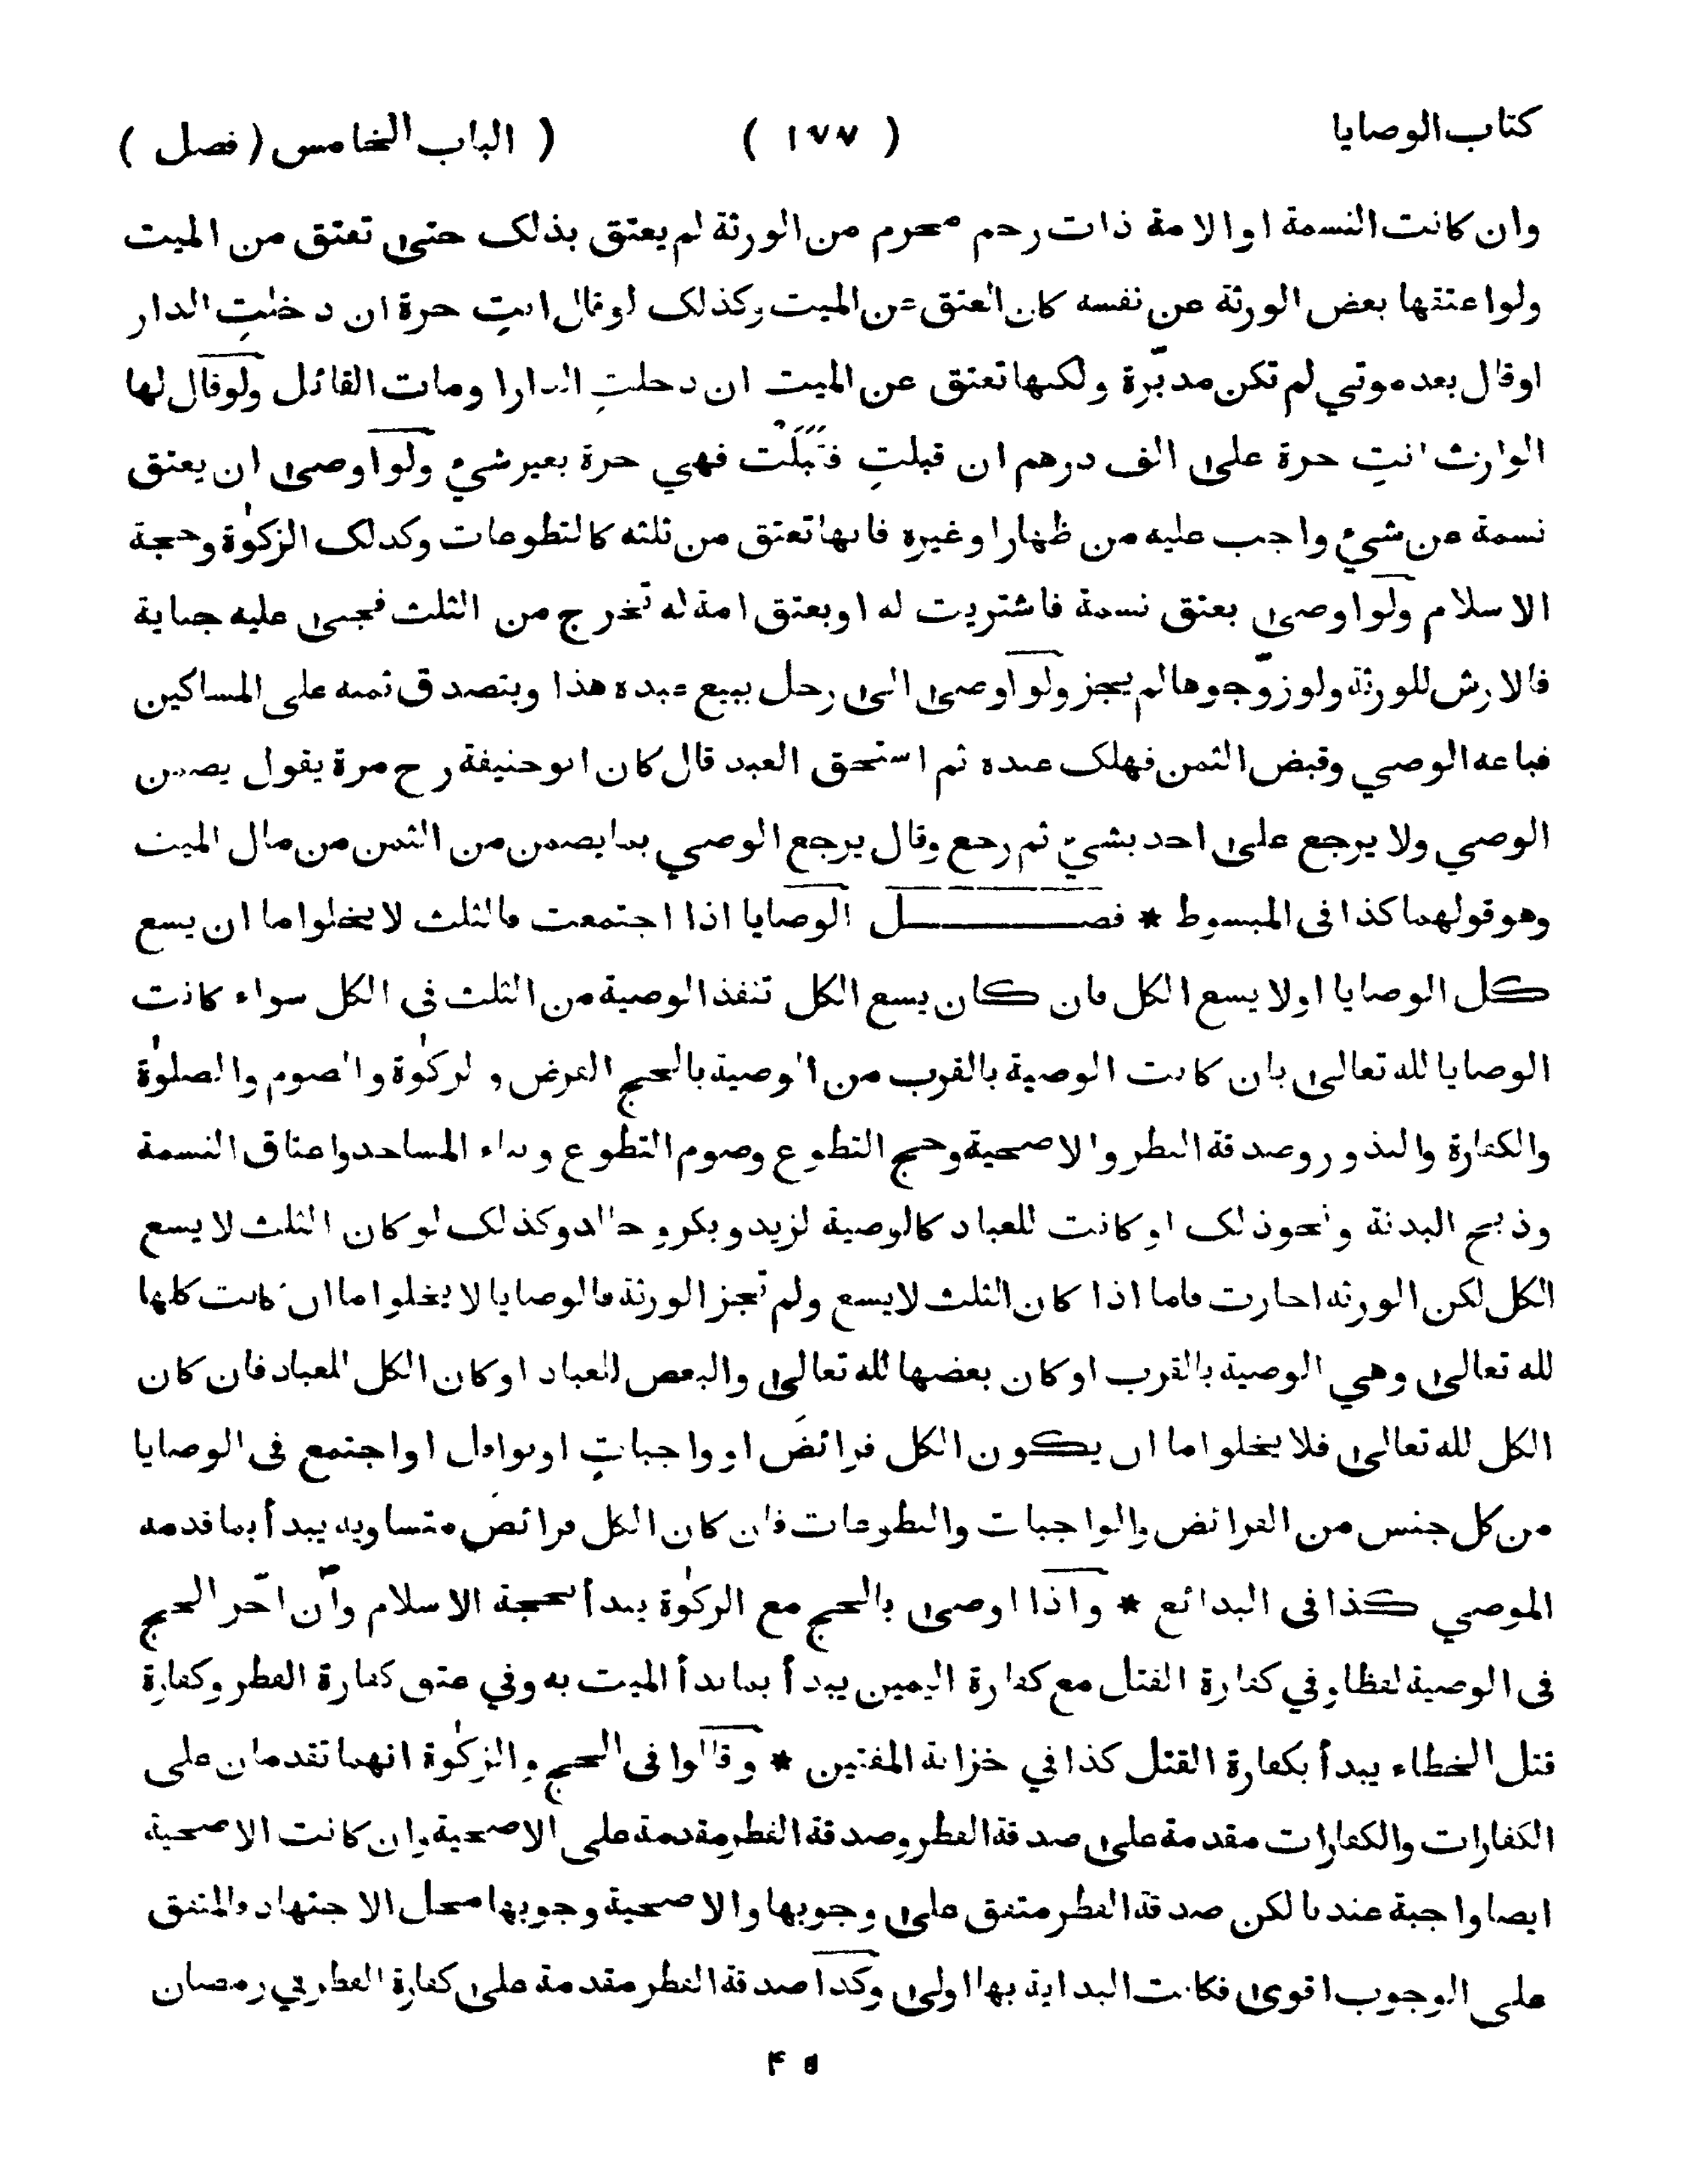 كتاب الوصايا ( ١٧٧ ) ( الباب الخامس ( فصل )
وان كانت النسمة او الامة ذات رحم محرم من الورثة لم يعتق بذلك حتى تعتق من الميت
ولو اعتقها بعض الورثة عن نفسه كان العتق عن الميت وكذلك لو قال انتِ حرة ان دخلتِ الدار
او قال بعد موتي لم تكن مدبّرة ولكنها تعتق عن الميت ان دخلتِ الدار او مات القائل ولو قال لها
الوارث انتِ حرة على الف درهم ان قبلتِ فَقَبِلَتْ فهي حرة بغير شيء ولو اوصى ان يعتق
نسمة عن شيء واجب عليه من ظهار او غيره فانها تعتق من ثلثه كالتطوعات وكذلك الزكوٰة وحجة
الاسلام ولو اوصى بعتق نسمة فاشتريت له او بعتق امة له تخرج من الثلث فجنى عليه جناية
فالارش للورثة ولو زوّجوها لم يجز ولو اوصى الى رجل ببيع عبده هذا ويتصدق ثمنه على المساكين
فباعه الوصي وقبض الثمن فهلك عنده ثم استحق العبد قال كان ابو حنيفة رح مرة يقول يضمن
الوصي ولا يرجع على احد بشيء ثم رجع وقال يرجع الوصي بما يضمن من الثمن من مال الميت
وهو قولهما كذا فى المبسوط * فصـــــل الوصايا اذا اجتمعت فالثلث لا يخلوا اما ان يسع
كل الوصايا او لا يسع الكل فان كان يسع الكل تنفذ الوصية من الثلث فى الكل سواء كانت
الوصايا لله تعالى بان كانت الوصية بالقرب من الوصية بالحج الفرض والزكوٰة والصوم والصلوٰة
والكفارة والنذور وصدقة الفطر والاضحية وحج التطوع وصوم التطوع وبناء المساجد واعتاق النسمة
وذبح البدنة ونحو ذلك او كانت للعباد كالوصية لزيد وبكر وخالد وكذلك لو كان الثلث لا يسع
الكل لكن الورثة اجازت فاما اذا كان الثلث لا يسع ولم تجز الورثة فالوصايا لا يخلوا اما ان كانت كلها
لله تعالى وهي الوصية بالقرب او كان بعضها لله تعالى والبعض للعباد او كان الكل للعباد فان كان
الكل لله تعالى فلا يخلو اما ان يكون الكل فرائضَ او واجباتٍ او نوافل او اجتمع فى الوصايا
من كل جنس من الفرائض والواجبات والتطوعات فان كان الكل فرائض متساوية يبدأ بما قدمه
الموصي كذا فى البدائع * واذا اوصى بالحج مع الزكوٰة يبدأ بحجة الاسلام وان اخّر الحج
فى الوصية لفظا وفي كفارة القتل مع كفارة اليمين يبدأ بما بدأ الميت به وفي عتق كفارة الفطر وكفارة
قتل الخطاء يبدأ بكفارة القتل كذا في خزانة المفتين * وقالوا فى الحج والزكوٰة انهما تقدمان على
الكفارات والكفارات مقدمة على صدقة الفطر وصدقة الفطر مقدمة على الاضحية وان كانت الاضحية
ايضا واجبة عندنا لكن صدقة الفطر متفق على وجوبها والاضحية وجوبها محل الاجتهاد والمتفق
على الوجوب اقوى فكانت البداية بها اولى وكذا صدقة الفطر مقدمة على كفارة الفطر في رمضان
۴۵